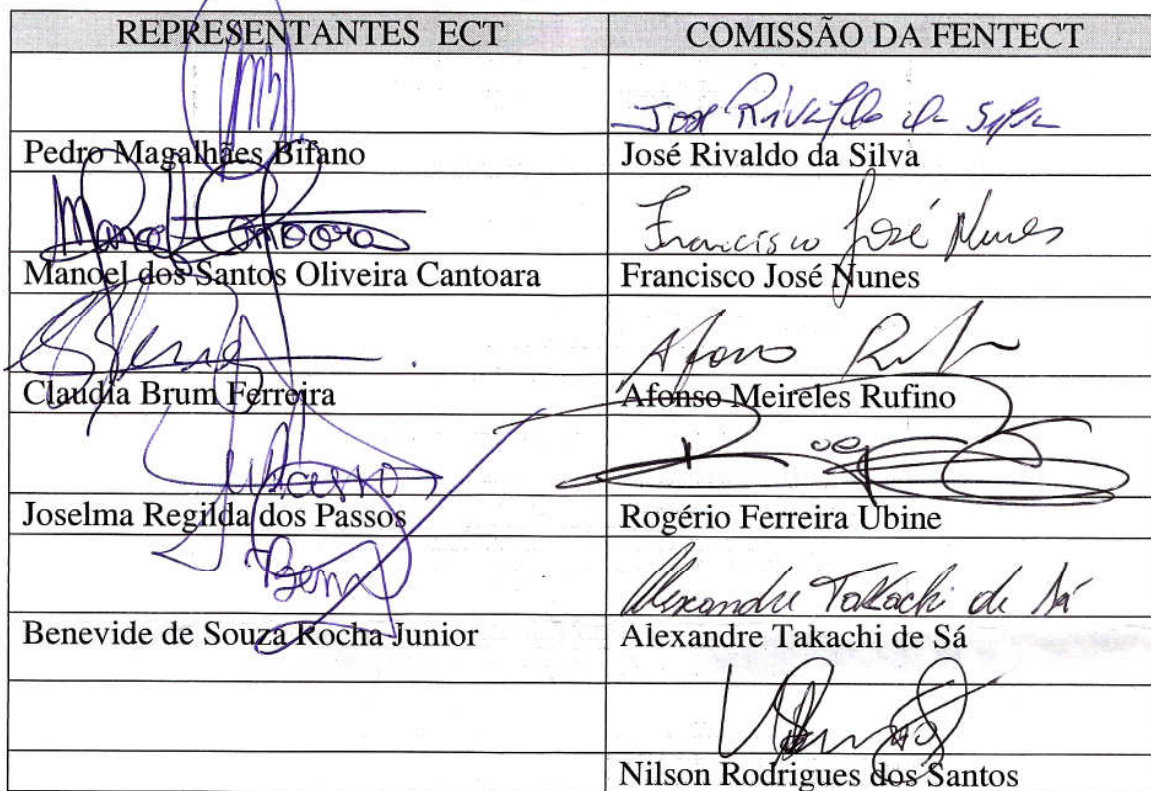 REPRESENTANTES ECT COMISSÃO DA FENTECT
José Rivaldo da Silva
Pedro Magalhães Bifano José Rivaldo da Silva
Manoel Cantoara Francisco José Nunes
Manoel dos Santos Oliveira Cantoara Francisco José Nunes
Afonso
Claudia Brum Ferreira Afonso Meireles Rufino
Joselma Regilda dos Passos Rogério Ferreira Ubine
Alexandre Takachi de Sá
Benevide de Souza Rocha Junior Alexandre Takachi de Sá
Nilson Rodrigues dos Santos